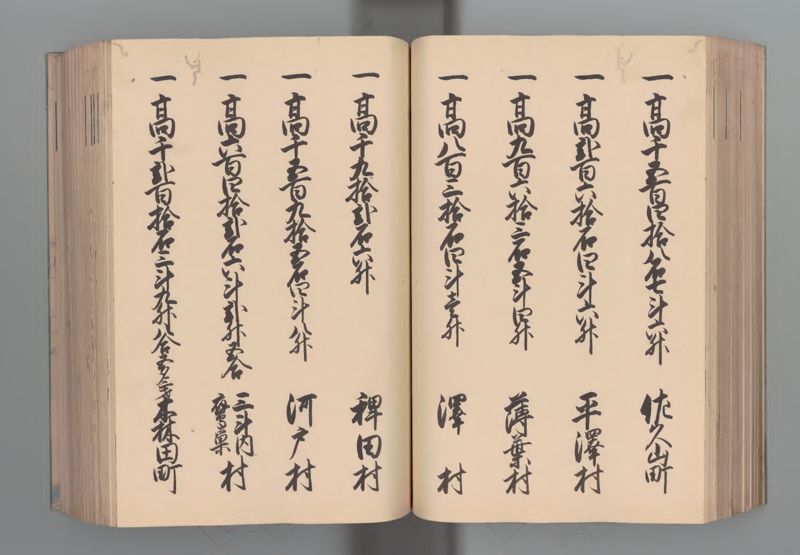 一高千五百四拾八石七斗六升 佐久山町
一高弐百六拾石四斗六升 平澤村
一高九百六拾三石五斗四升 薄葉村
一高八百三拾石四斗壱升 澤村
一高千九拾弐石六升 稗田村
一高千五百九拾五石四斗八升 河戸村
一高六百四拾弐石六斗弐升五合 三斗内 鷹巣 村
一高千弐百拾石三斗九升八合五夕 大森田町